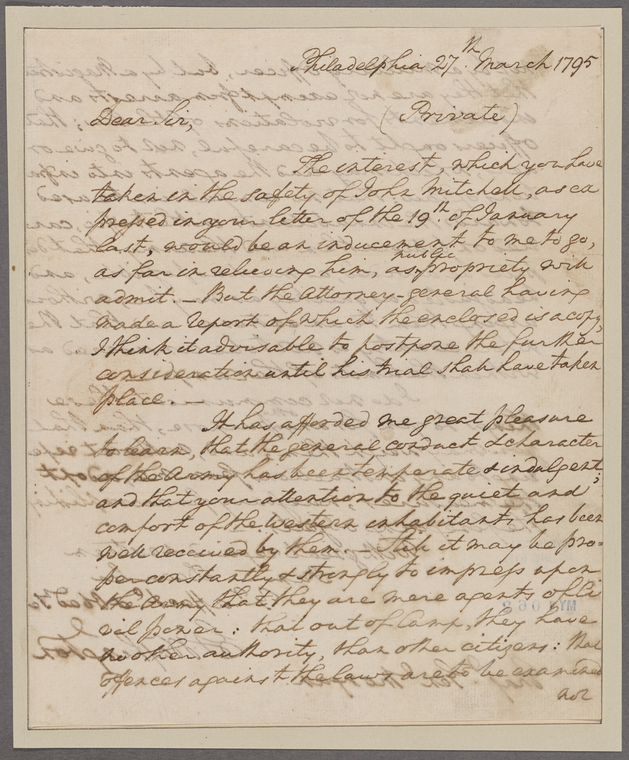 Philadelphia 27th. March 1795
Dear Sir, (Private)
The interest, which you have
taken in the safety of John Mitchell, as ex
pressed in your letter of the 19th. of January
last, would be an inducement to me to go,
as far in relieving him, as public propriety will
admit. — But the Attorney-general having
made a report of which the enclosed is a copy,
I think it advisable to postpone the further
consideration until his trial shall have taken
place. —
It has afforded me great pleasure
to learn, that the general conduct & character
of the Army has been temperate & indulgent;
and that your attention to the quiet and
comfort of the western inhabitants has been
well received by them. — Still it may be pro=
per constantly & strongly to impress upon
the Army that they are mere agents of Ci
vil power: that out of Camp, they have
no other authority, than other citizens: that
offences against the laws are to be examined
not